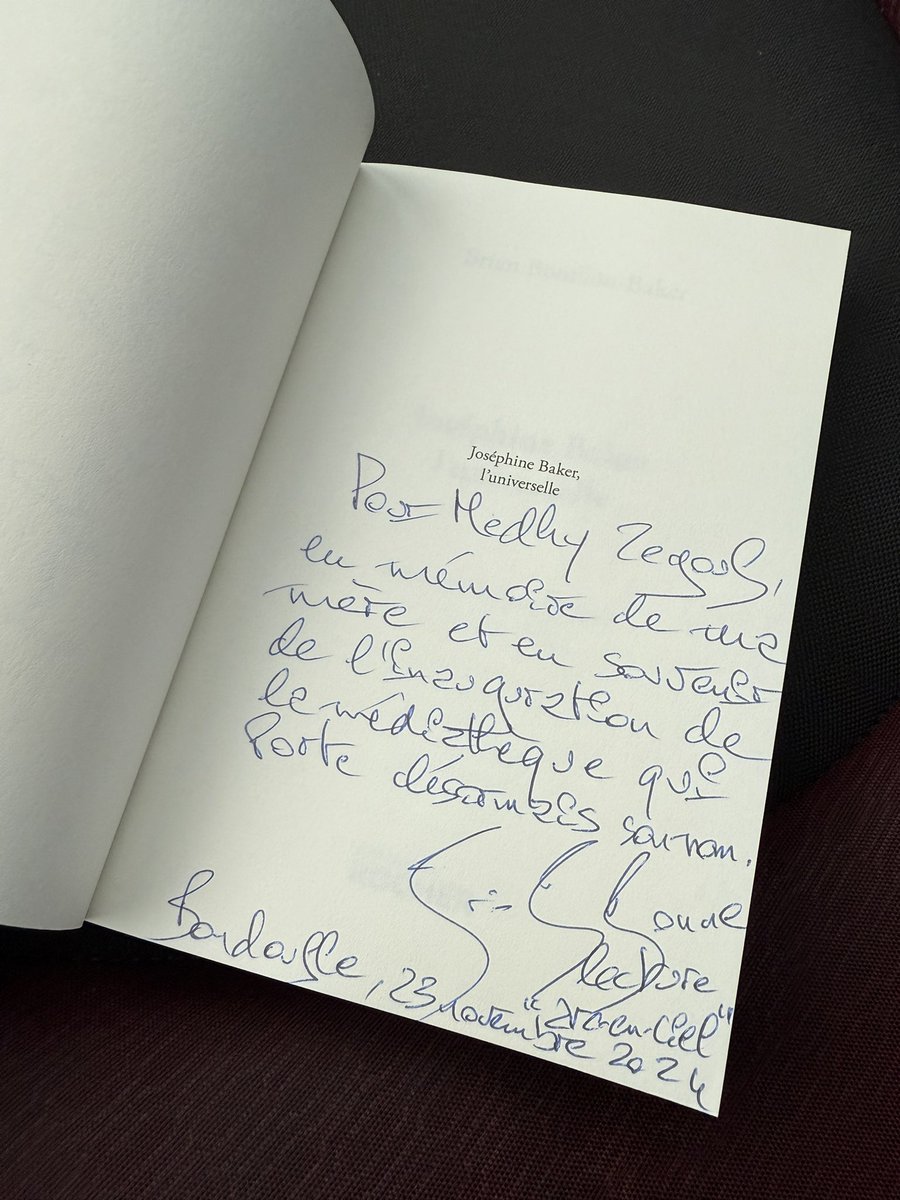 Joséphine Baker,
l'universelle
Pour Medhy Zegaoui,
en mémoire de ma
mère et en souvenir
de l'inauguration de
la médiathèque qui
Porte désormais son nom.
Bonne
lecture
"arc-en-Ciel"
Bondoufle, 23 novembre 2024